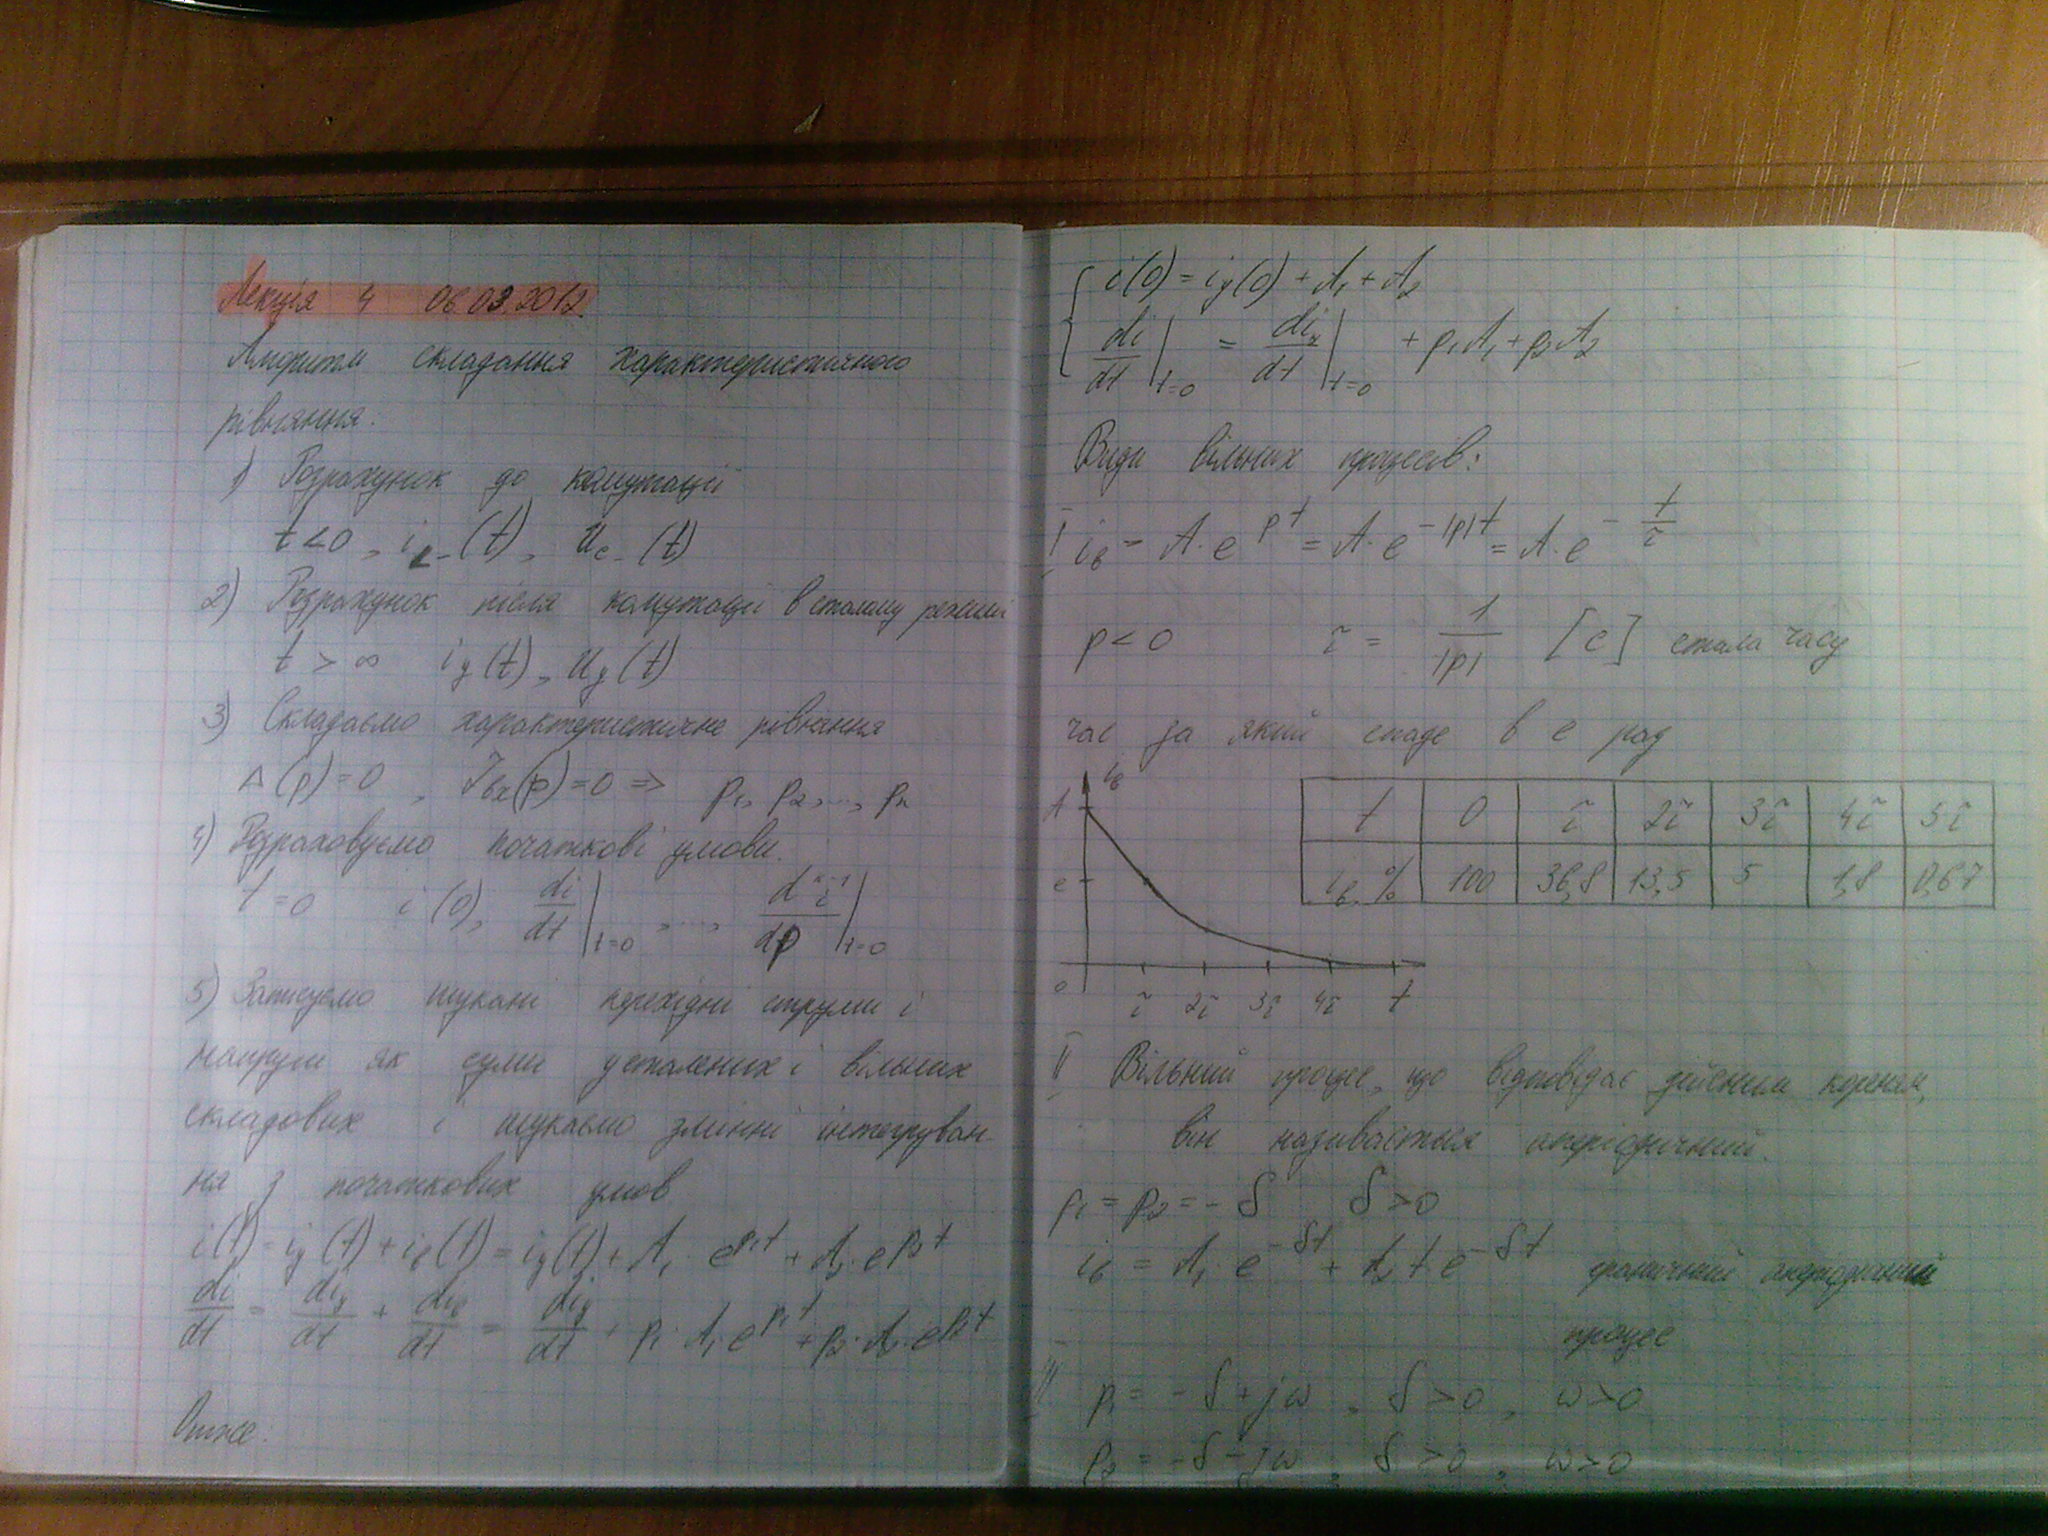 Лекція 4 06.03.2012
Алгоритм складання характеристичного
рівняння.
1) Розрахунок до комутації
t<0, i_L-(t), u_c-(t)
2) Розрахунок після комутації в сталому режимі
t > ∞ i_y(t), u_y(t)
3) Складаємо характеристичне рівняння
Δ(p)=0, Z_вх(p)=0 => p₁, p₂, ..., pₙ
4) Розраховуємо початкові умови.
t=0 i(0), di/dt|t=0, ..., dⁿ⁻¹i/dp|t=0
5) Записуємо шукані перехідні струми і
напруги як суми усталених і вільних
складових і шукаємо змінні інтегруван-
ня з початкових умов
i(t)=i_y(t)+i_в(t)=i_y(t)+A₁·e^p₁t+A₂·e^p₂t
di/dt = di_y/dt + di_в/dt = di_y/dt + p₁·A₁e^p₁t+p₂·A₂·e^p₂t
Отже:
i(0)=i_y(0)+A₁+A₂
di/dt|t=0 = di_y/dt|t=0 + p₁A₁+p₂A₂
Види вільних процесів:
I i_в = A·e^pt = A·e^-|p|t = A·e^-t/τ
p<0 τ = 1/|p| [c] стала часу
час за який спаде в e раз
i_в
A
e
0 τ 2τ 3τ 4τ t
t 0 τ 2τ 3τ 4τ 5τ
i_в,% 100 36,8 13,5 5 1,8 0,67
II Вільний процес, що відповідає дійсним кореням,
він називається аперіодичний.
p₁=p₂=-δ δ>0
i_в = A₁·e^-δt + A₂te^-δt граничний аперіодичний
процес
III p₁=-δ+jω, δ>0, ω>0
p₂=-δ-jω, δ>0, ω>0